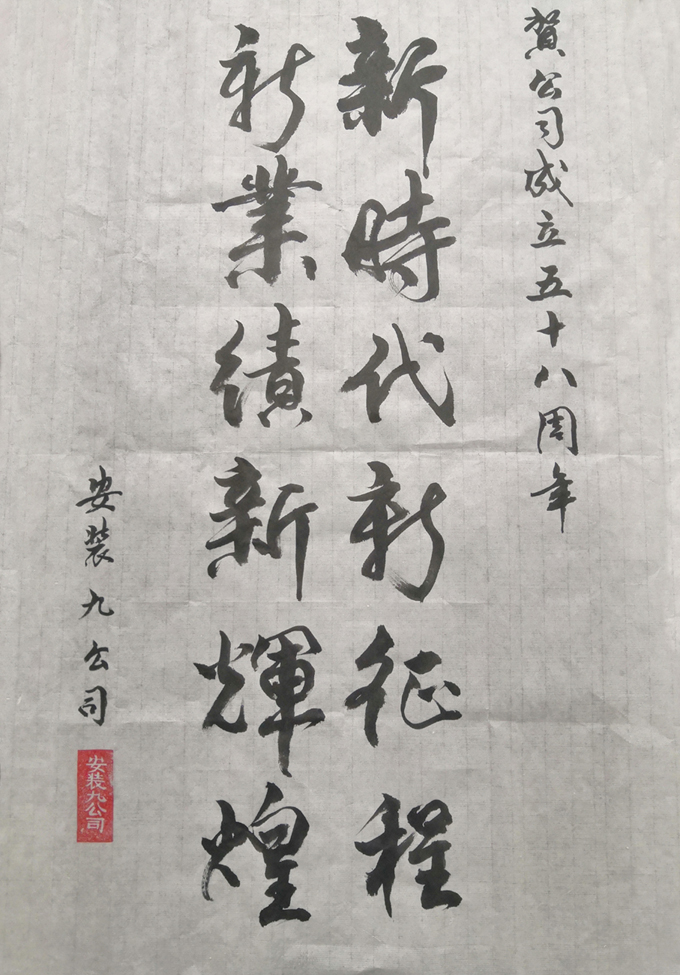 賀公司成立五十八周年
新時代新征程
新業績新輝煌
安装九公司
安装九公司